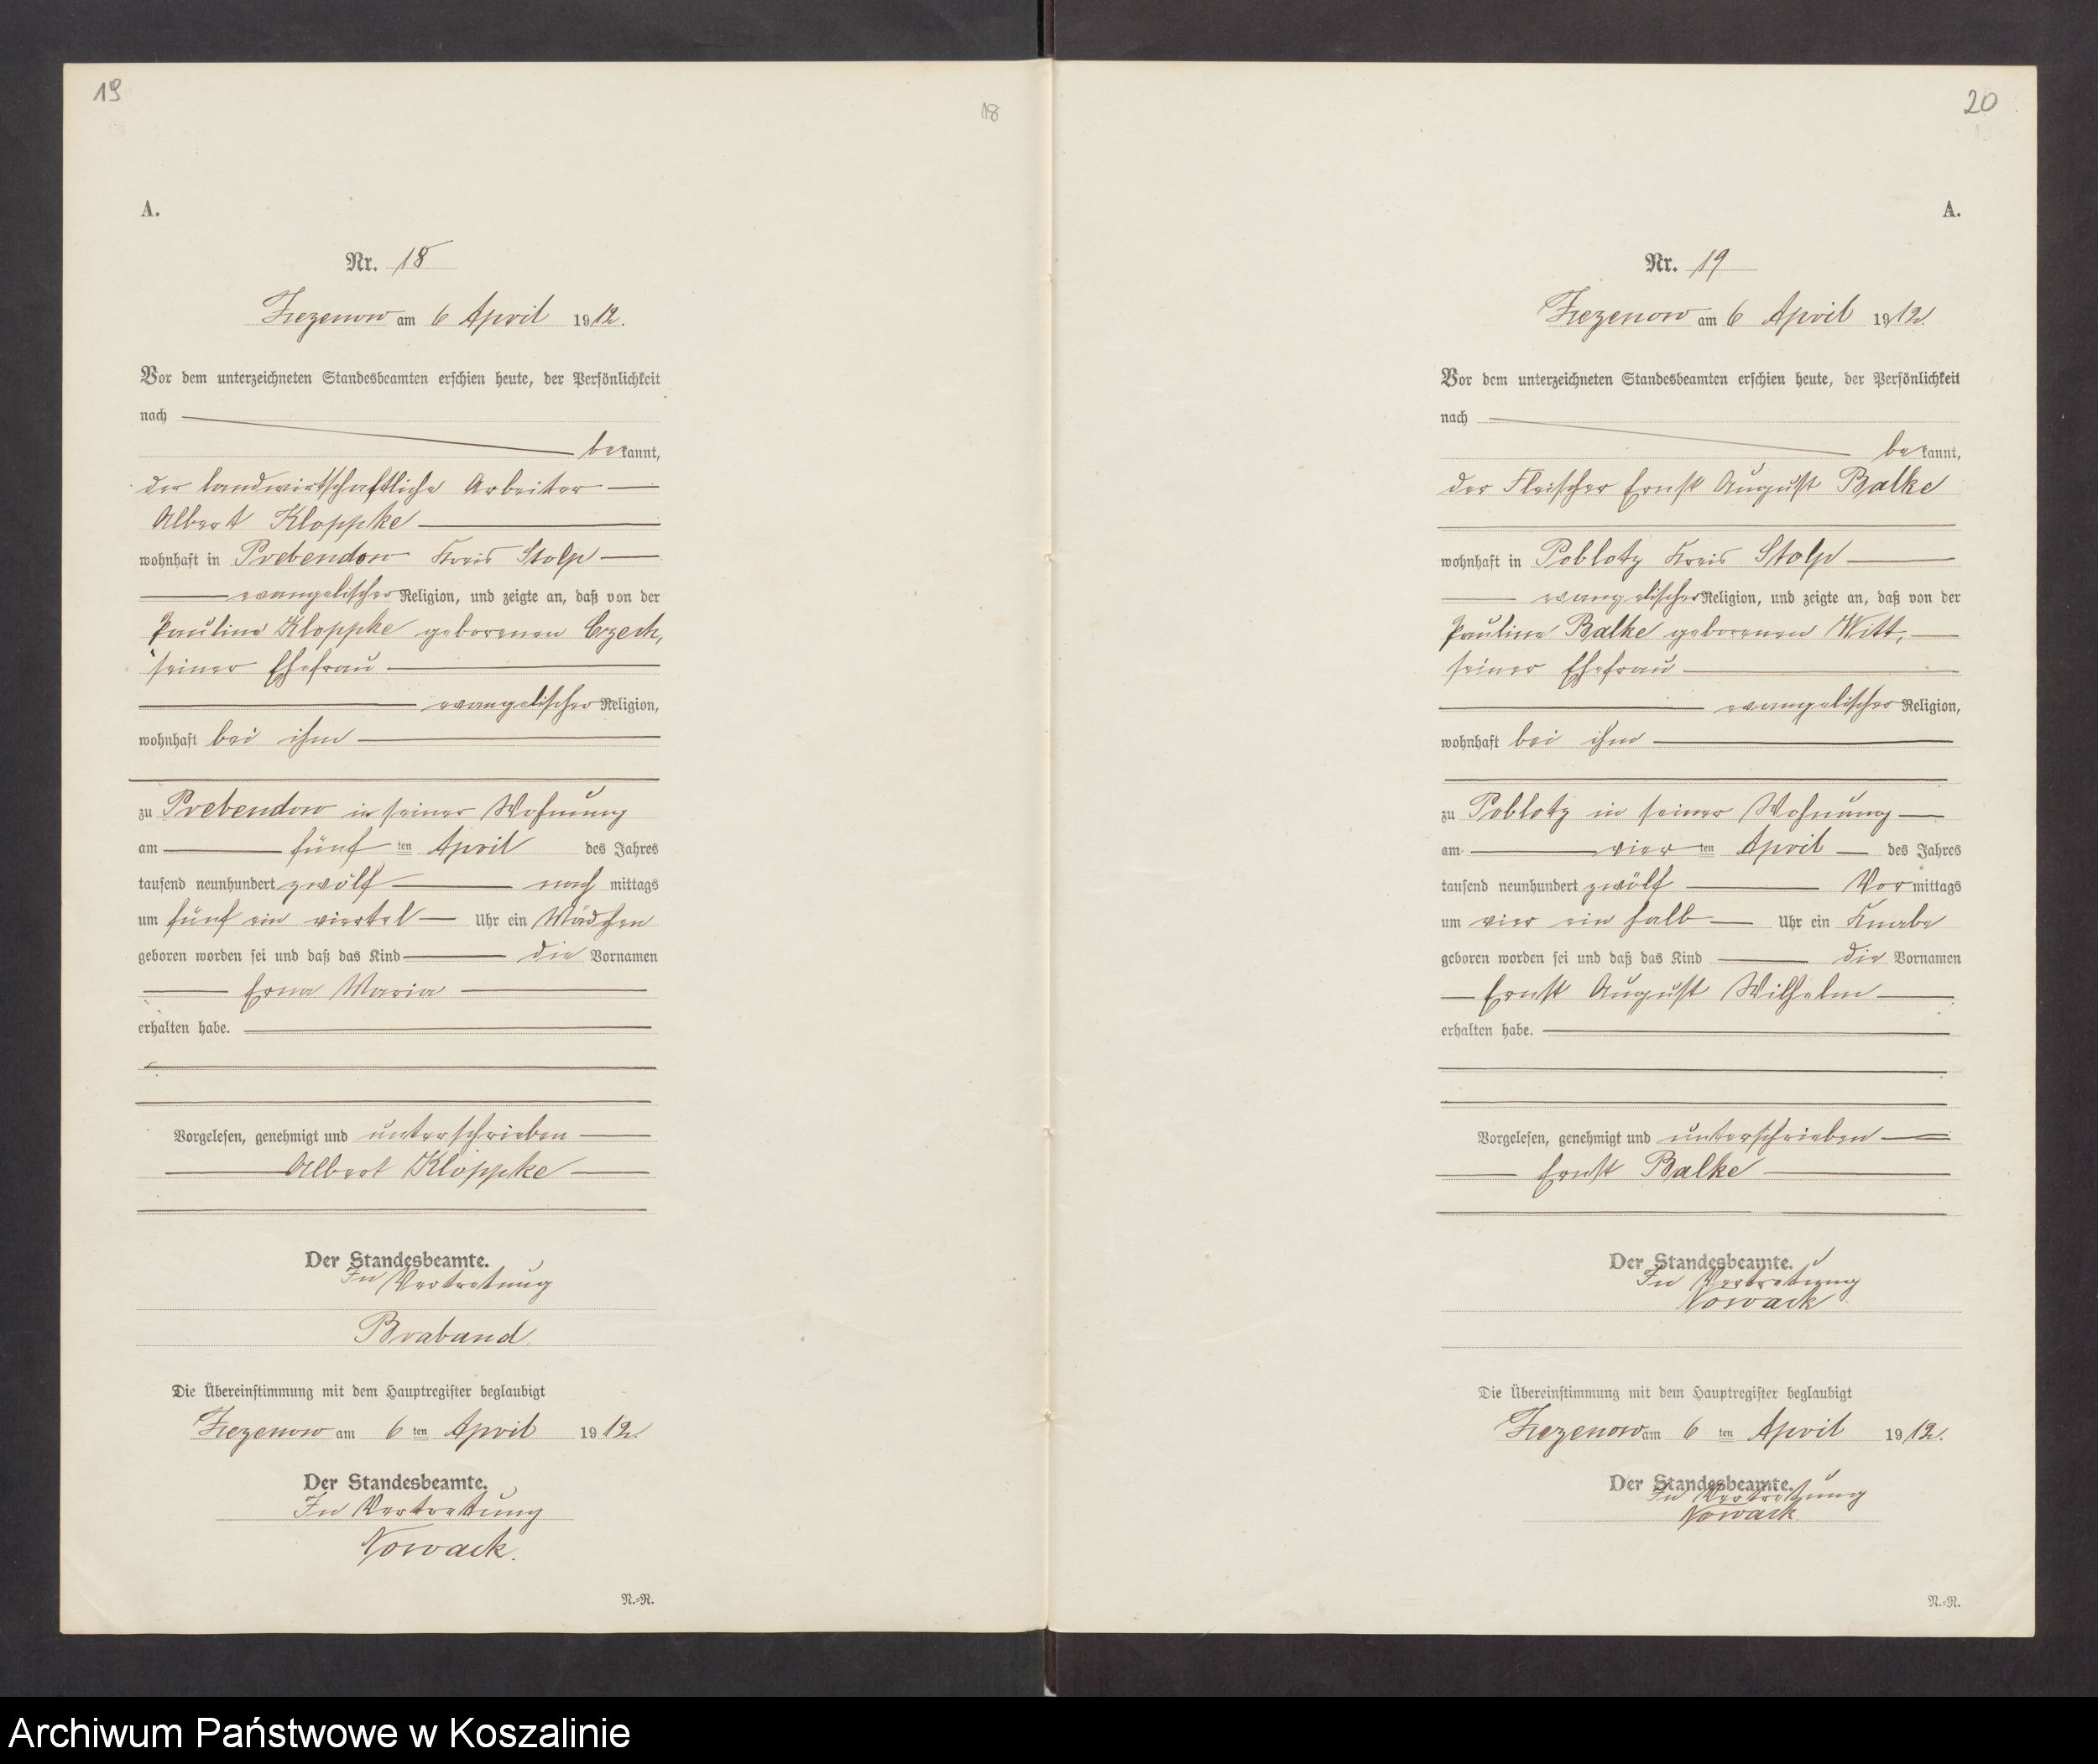 19
18
A.
Nr. 18
Zezenow am 6 April 1912.
Vor dem unterzeichneten Standesbeamten erschien heute, der Persönlichkeit
nach
bekannt,
der landwirtschaftliche Arbeiter
Albert Kloppke
wohnhaft in Prebendow Kreis Stolp
evangelischer Religion, und zeigte an, daß von der
Pauline Kloppke geborenen Czech,
seiner Ehefrau
evangelischer Religion,
wohnhaft bei ihm
zu Prebendow in seiner Wohnung
am fünf ten April des Jahres
tausend neunhundert zwölf nach mittags
um fünf ein viertel Uhr ein Mädchen
geboren worden sei und daß das Kind die Vornamen
Erna Maria
erhalten habe.
Vorgelesen, genehmigt und unterschrieben
Albert Kloppke
Der Standesbeamte.
In Vertretung
Braband
Die Übereinstimmung mit dem Hauptregister beglaubigt
Zezenow am 6 ten April 1912.
Der Standesbeamte.
In Vertretung
Nowack.
N.=R.
20
A.
Nr. 19
Zezenow am 6 April 1912.
Vor dem unterzeichneten Standesbeamten erschien heute, der Persönlichkeit
nach
bekannt,
der Fleischer Ernst August Balke
wohnhaft in Poblotz Kreis Stolp
evangelischer Religion, und zeigte an, daß von der
Pauline Balke geborenen Witt,
seiner Ehefrau
evangelischer Religion,
wohnhaft bei ihm
zu Poblotz in seiner Wohnung
am vier ten April des Jahres
tausend neunhundert zwölf Vor mittags
um vier ein halb Uhr ein Knabe
geboren worden sei und daß das Kind die Vornamen
Ernst August Wilhelm
erhalten habe.
Vorgelesen, genehmigt und unterschrieben
Ernst Balke
Der Standesbeamte.
In Vertretung
Nowack
Die Übereinstimmung mit dem Hauptregister beglaubigt
Zezenow am 6 ten April 1912.
Der Standesbeamte.
In Vertretung
Nowack
N.=R.
Archiwum Państwowe w Koszalinie